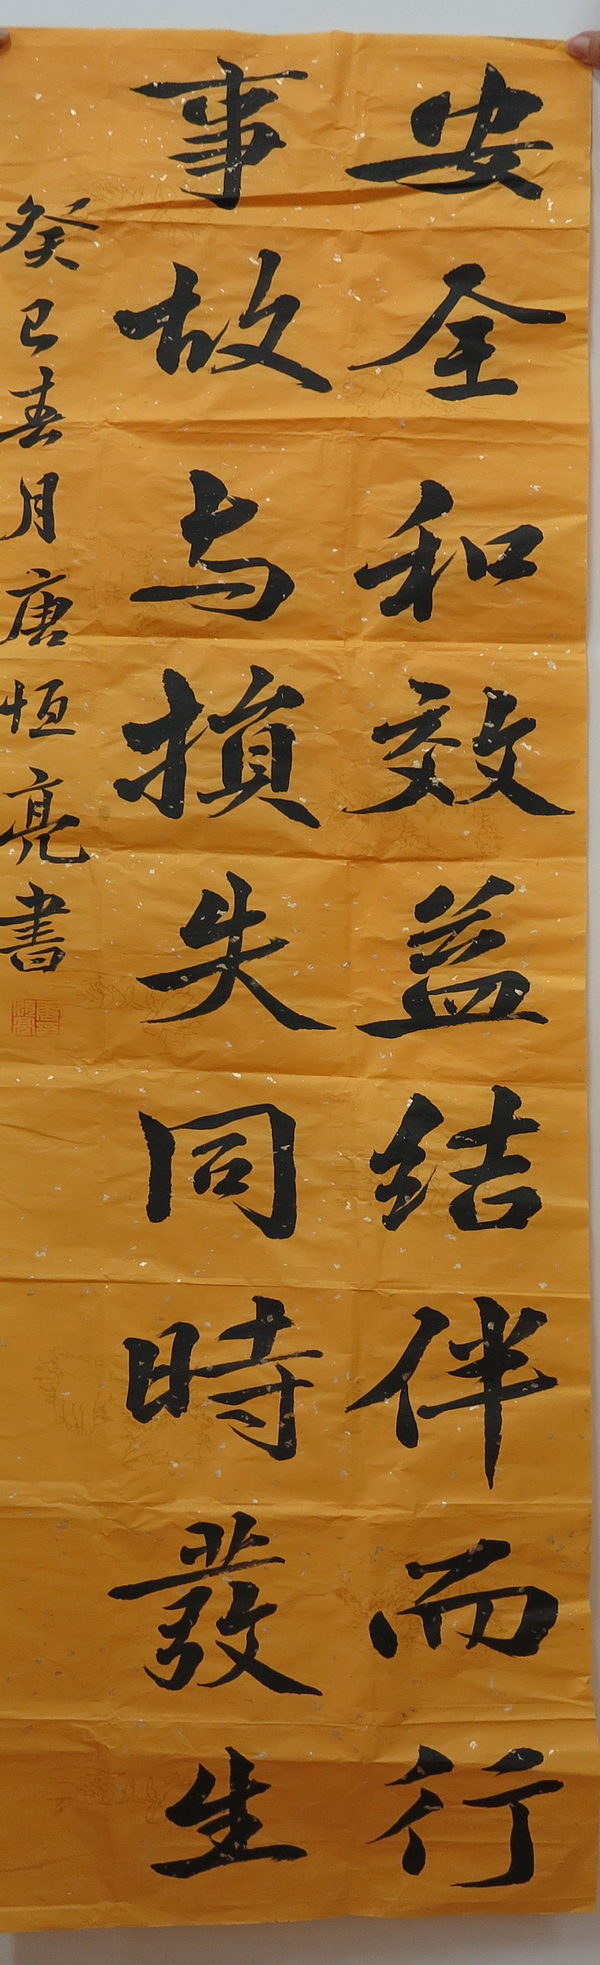 安全和效益结伴而行
事故与損失同時發生
癸巳春月唐恒亮書